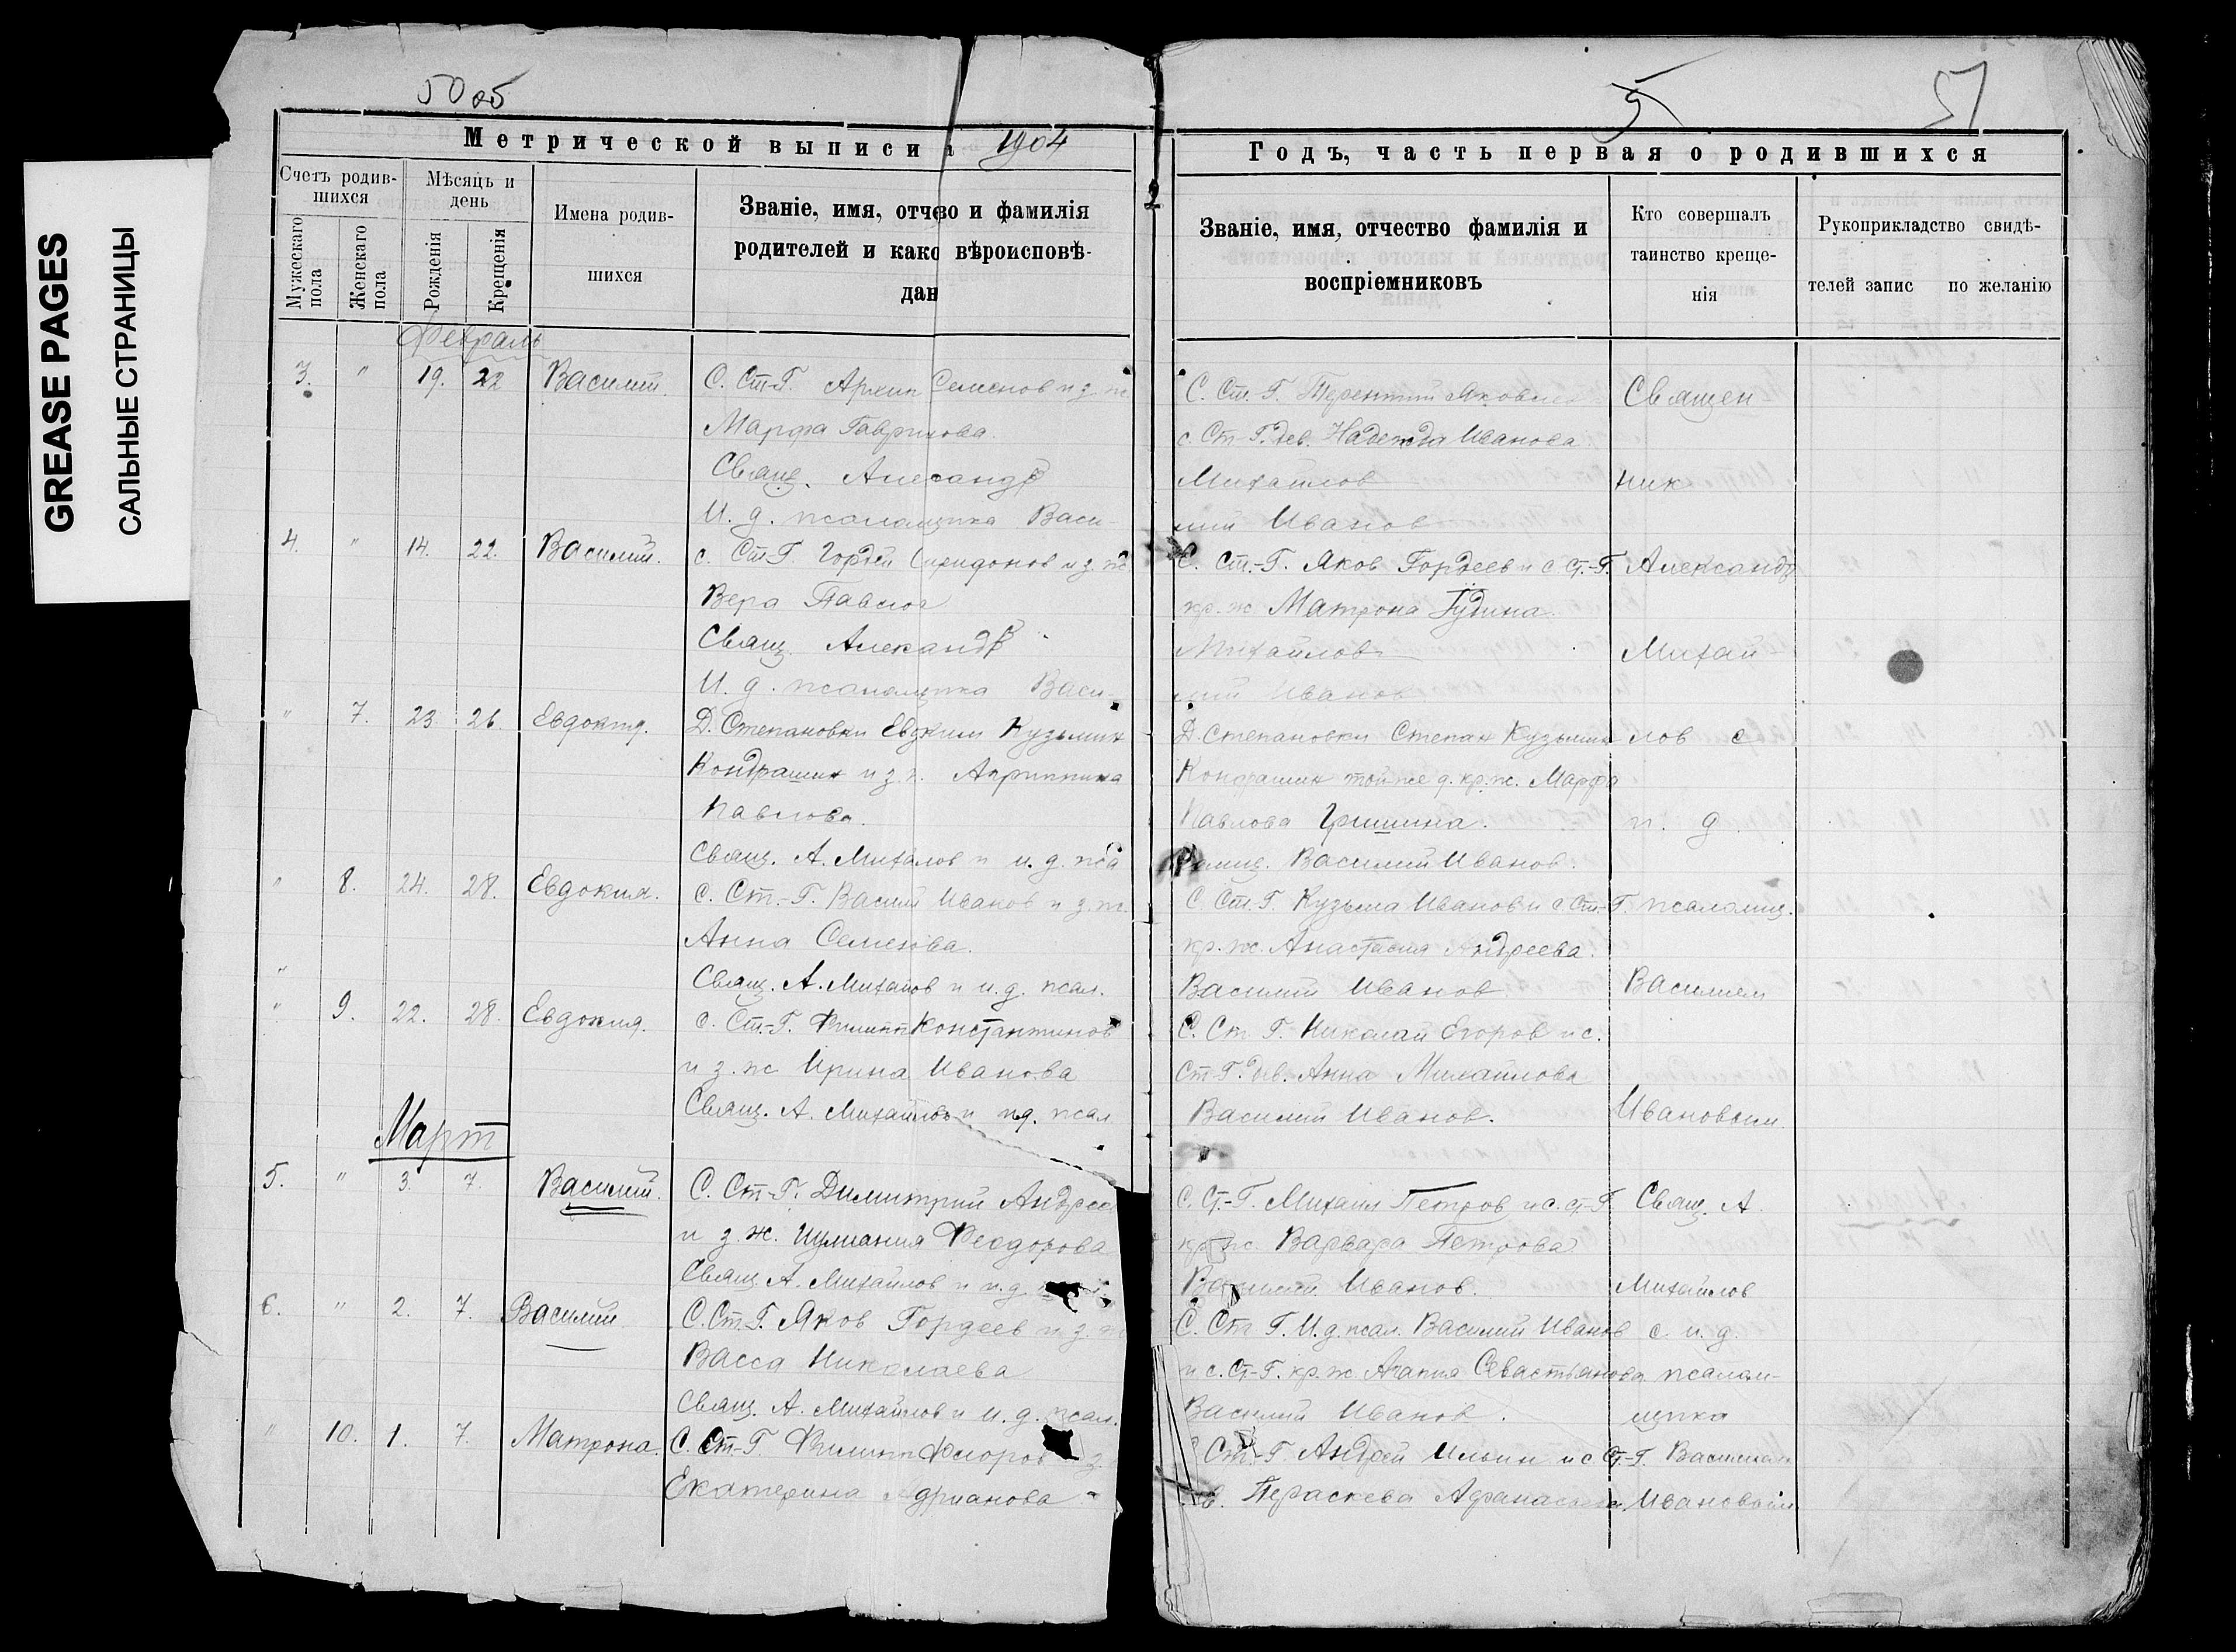 GREASE PAGES
САЛЬНЫЕ СТРАНИЦЫ
50об
Метрической выписи 1904
Счетъ родив-
шихся
Мѣсяць и
день
Имена родив-
шихся
Званіе, имя, отче во и фамилія
родителей и како вѣроисповѣ-
дан
Мужескаго
пола
Женскаго
пола
Рожденія
Крещенія
Февраль
3. " 19. 22 Василий. С. Ст-Г. Архип Семенов и з. ж.
Марфа Гаврилова.
Свящ. Алесандр
И. д. псаломщика Васи-
4. " 14. 22. Василий. с. Ст-Г. Гордей Спиридонов и з. ж
Вера Павлов
Свящ. Алекандр
И. д. псаломщика Васи-
" 7. 23. 26. Д. Степановки Евдоким Кузьмин
Кондрашин и з. ж. Агриппина
Павлова.
Свящ. А. Михалов и и. д. пса
" 8. 24. 28. Евдокия. с. Ст.-Г. Васий Иванов и з. ж.
Анна Семенова.
Свящ. А. Михайлов и и. д. псал.
" 9. 22. 28. Евдокия. с. Ст.-Г. Филипп Константинов
и з. ж Ирина Иванова
Свящ. А. Михайлов и ид. псал
Март
5. " 3. 7. Василий. С. Ст-Г. Димитрий Андрее
и з. ж. Иулиания Феодорова
Свящ. А. Михайлов и и. д.
6. " 2. 7. Василий С. Ст. Г. Яков Гордеев и з. ж
Васса Николаева
Свящ. А. Михайлов и и. д. псал.
" 10. 1. 7. Матрона. С. Ст-Г. Филипп Флоров з.
Екатерина Адрианова
51
2
Годъ, часть первая о родившихся
Званіе, имя, отчество фамилія и
воспріемниковъ
Кто совершалъ
таинство креще-
нія
Рукоприкладство свидѣ-
телей запис по желанію
С. Ст. Г. Терентий Яковлев Священ
с. Ст Г. дев. Надежда Иванова
Михайлов ник
лий Иванов
С. Ст.-Г. Яков Гордеев и с. Ст.-Г. Александр
кр. ж Матрона Гудина.
Михайлов Михай-
лий Иванов
Д. Степановки Степан Кузьмин лов с
Кондрашин той же д. кр. ж. Марфа
Павлова Гришина. и. д.
ломщ. Василий Иванов.
С. Ст. Г. Кузьма Иванов и с. Ст.-Г. псаломщ.
кр. ж. Анастасия Андреева.
Василий Иванов Василием
С. Ст Г. Николай Егоров и с.
Ст-Г. дев. Анна Михайлова
Василий Иванов. Ивановым.
С. Ст.-Г. Михаил Петров и с. ст-Г. Свящ. А.
кр. ж. Варвара Петрова
Василий Иванов. Михайлов
С. Ст Г. И. д. псал. Василий Иванов с. и. д.
и с. Ст-Г. кр. ж. Агапия Севастьянова псалом-
Василий Иванов. щика
С Ст.-Г. Андрей Ильин и с Ст-Г. Василием
Параскева Афанасьева Ивановым